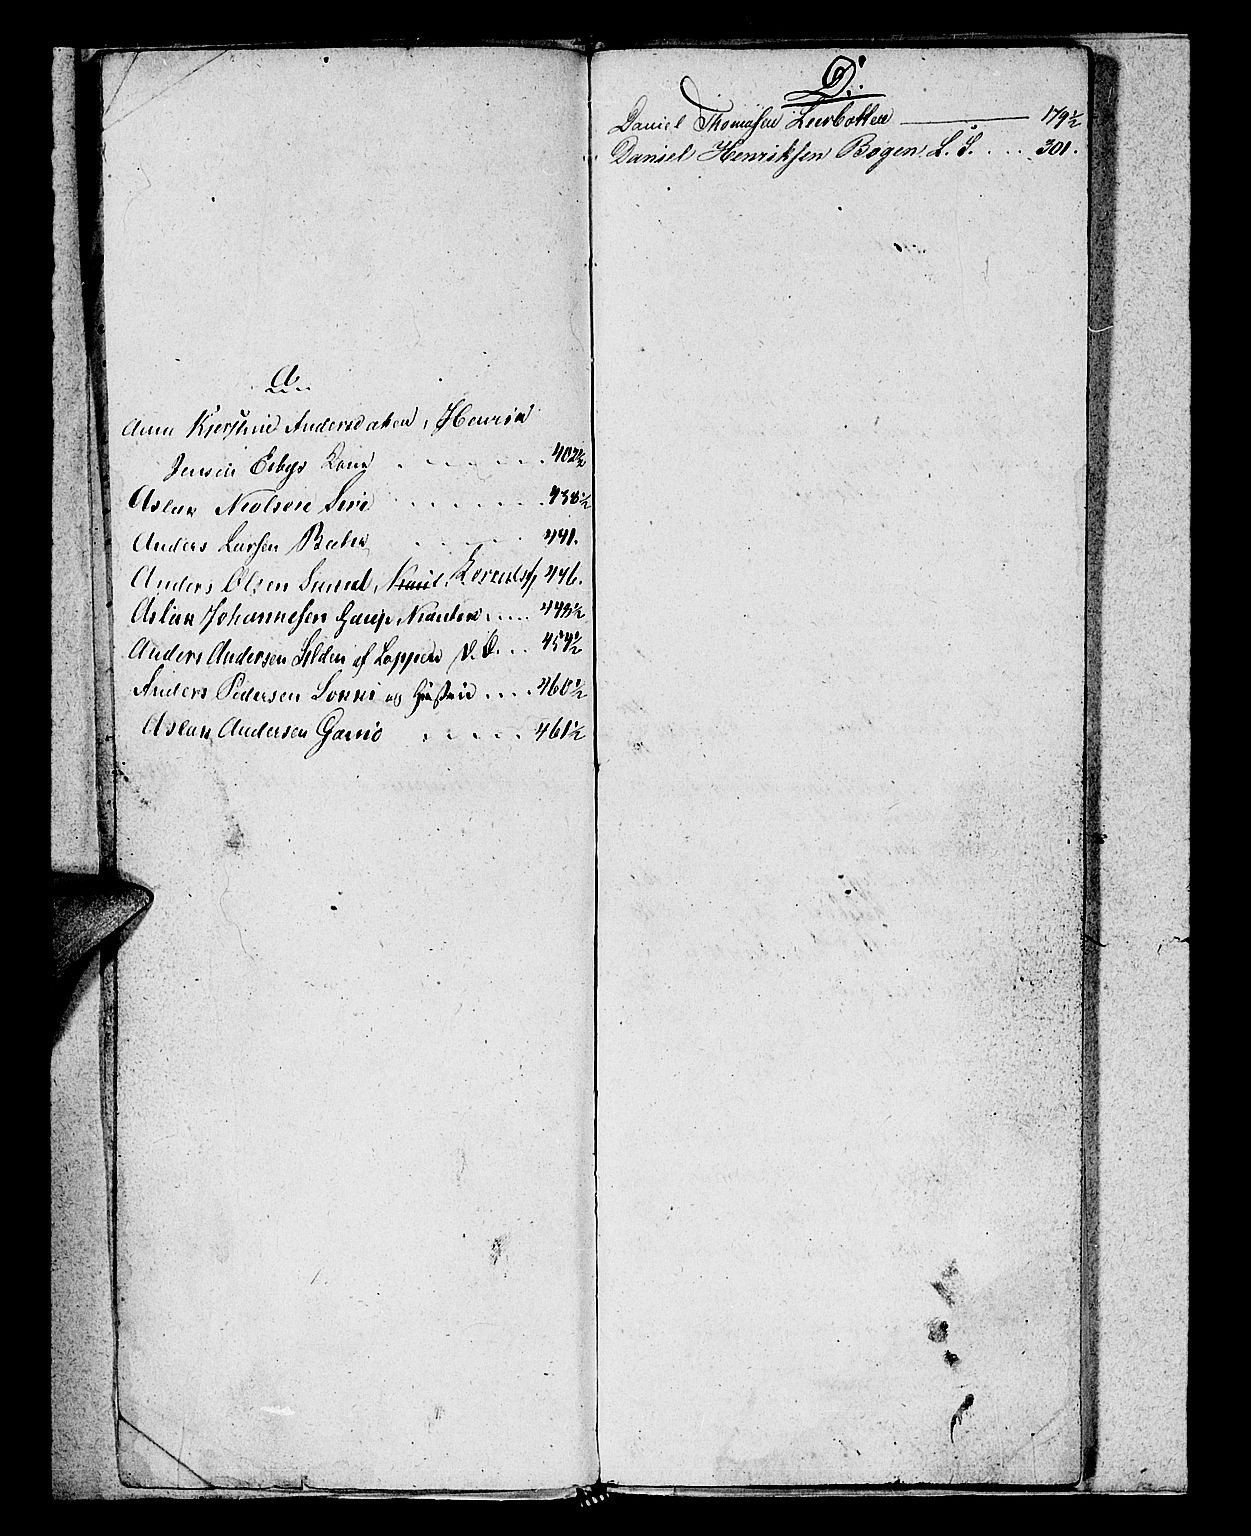 A.
Anna Kjerstine Andersdatter, Henrik
Jensen Erbys Kone . . . . . . 402½
Aslak Nielsen Siri . . . . . . 438½
Anders Larsen . . . . 441.
Anders Olsen 446.
Aslak Johannesen Gaup, . . . . 448½
Anders Andersen Silden af Loppen . . . 454½
Anders Pedersen Sonni og Hustrue . . . . 460½
Aslak Andersen Gaino . . . . . 461½
D.
Daniel Thomasen Leerbotten 179½
Daniel Henriksen Bogen. L. S. . . . 301.